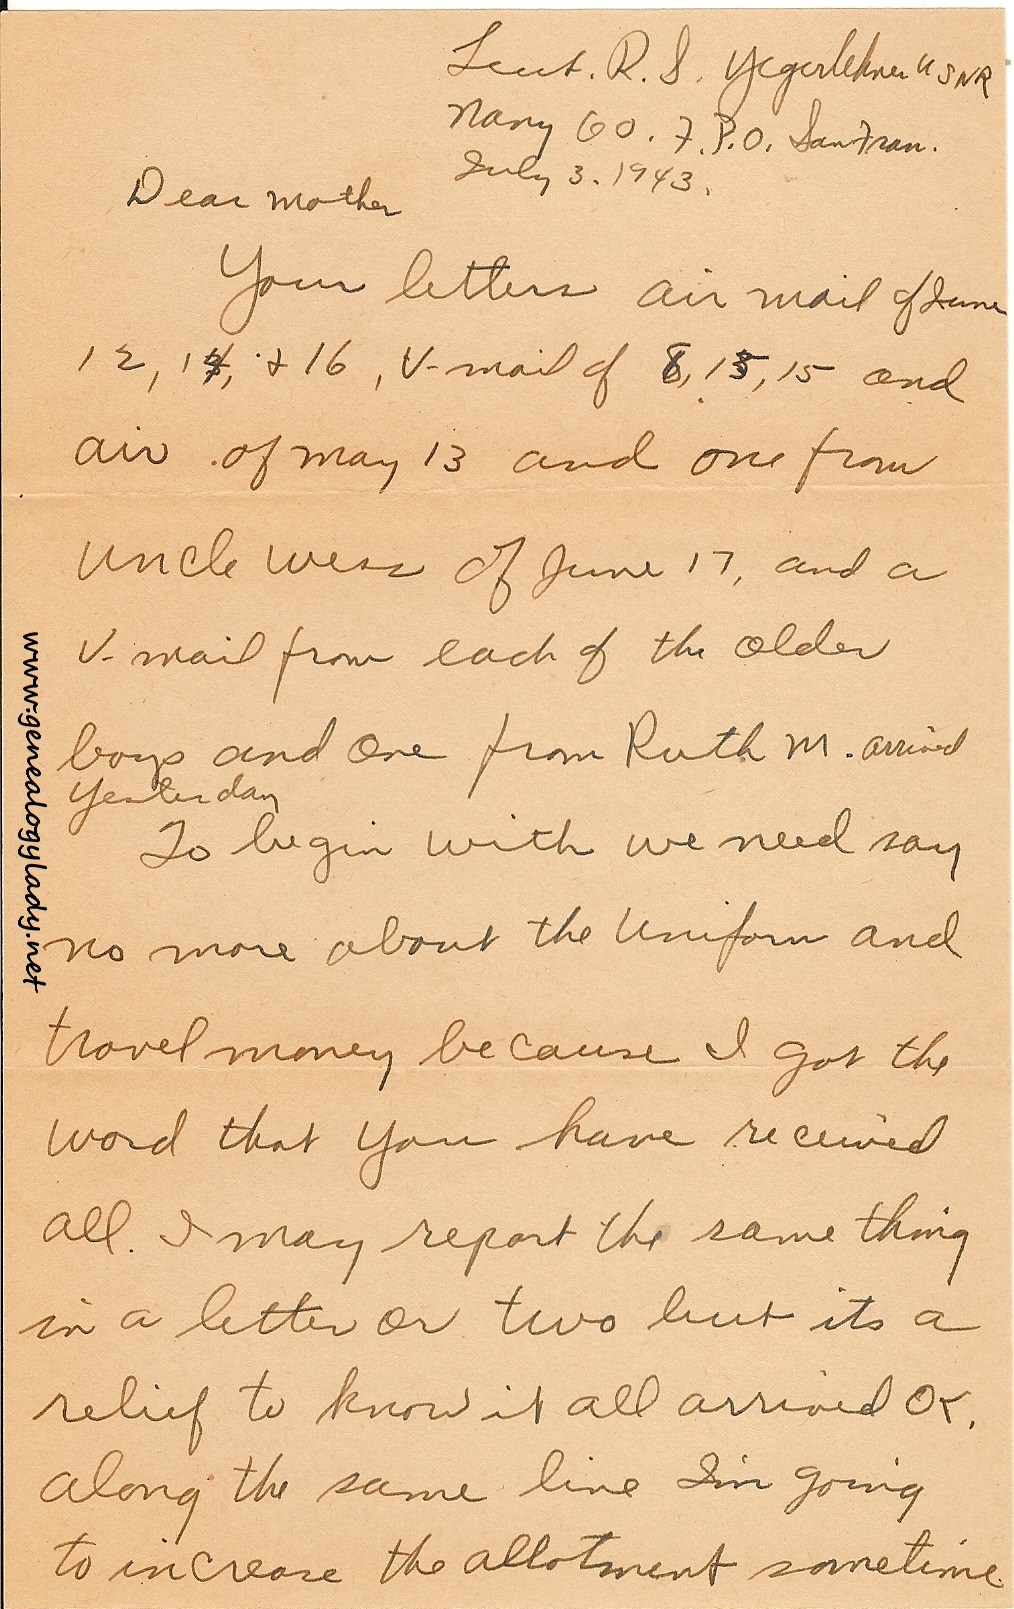 Lieut. R. S. Yegerlehner USNR
Navy 60. F.P.O. San Fran.
July 3. 1943.
Dear Mother
Your letters air mail of June
12, 14, + 16, V-mail of 8, 13, 15 and
air of May 13 and one from
Uncle Wess of June 17, and a
V-mail from each of the older
boys and one from Ruth M. arrived
yesterday
To begin with we need say
no more about the uniform and
travel money because I got the
word that you have received
all. I may report the same thing
in a letter or two but its a
relief to know it all arrived OK.
along the same line I'm going
to increase the allotment sometime
www.genealogylady.net